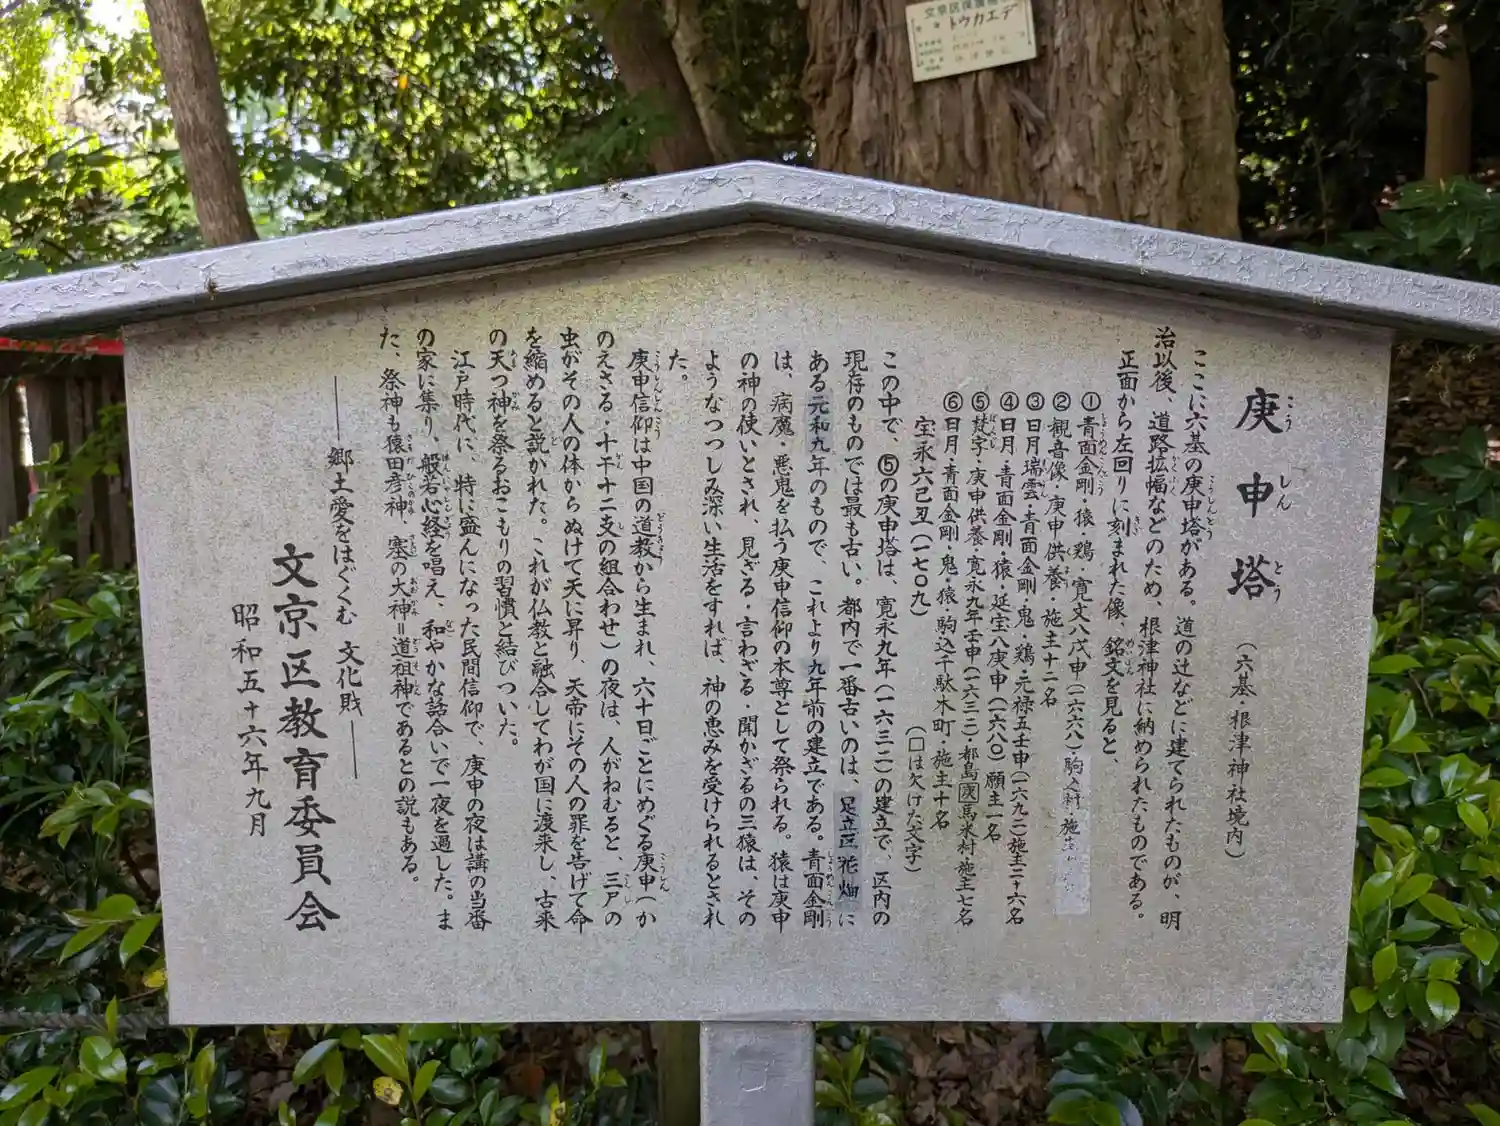 文京区保護樹木
トウカエデ
庚申塔 (六基・根津神社境内)
ここに六基の庚申塔がある。道の辻などに建てられたものが、明
治以後、道路拡幅などのため、根津神社に納められたものである。
正面から左回りに刻まれた像、銘文を見ると、
①青面金剛・猿・鶏・寛文八戊申(一六六八)・駒込村・施主
②観音像・庚申供養・施主十二名
③日月瑞雲・青面金剛・鬼・鶏・元禄五壬申(一六九二)施主二十六名
④日月・青面金剛・猿・延宝八庚申(一六八〇)願主一名
⑤梵字・庚申供養・寛永九年壬申(一六三二)・都島馬米村・施主七名
⑥日月・青面金剛・鬼・猿・駒込千駄木町・施主十名
宝永六己丑(一七〇九)
(□は欠けた文字)
この中で、⑤の庚申塔は、寛永九年(一六三二)の建立で、区内の
現存のものでは最も古い。都内で一番古いのは、足立区花畑に
ある元和九年のもので、これより九年前の建立である。青面金剛
は、病魔・悪鬼を払う庚申信仰の本尊として祭られる。猿は庚申
の神の使いとされ、見ざる・言わざる・聞かざるの三猿は、その
ようなつつしみ深い生活をすれば、神の恵みを受けられるとされ
た。
庚申信仰は中国の道教から生まれ、六十日ごとにめぐる庚申(か
のえさる・十干十二支の組合わせ)の夜は、人がねむると、三尸の
虫がその人の体からぬけて天に昇り、天帝にその人の罪を告げて命
を縮めると説かれた。これが仏教と融合してわが国に渡来し、古来
の天つ神を祭るおこもりの習慣と結びついた。
江戸時代に、特に盛んになった民間信仰で、庚申の夜は講の当番
の家に集り、般若心経を唱え、和やかな話合いで一夜を過した。ま
た、祭神も猿田彦神、塞の大神=道祖神であるとの説もある。
——郷土愛をはぐくむ 文化財——
文京区教育委員会
昭和五十六年九月